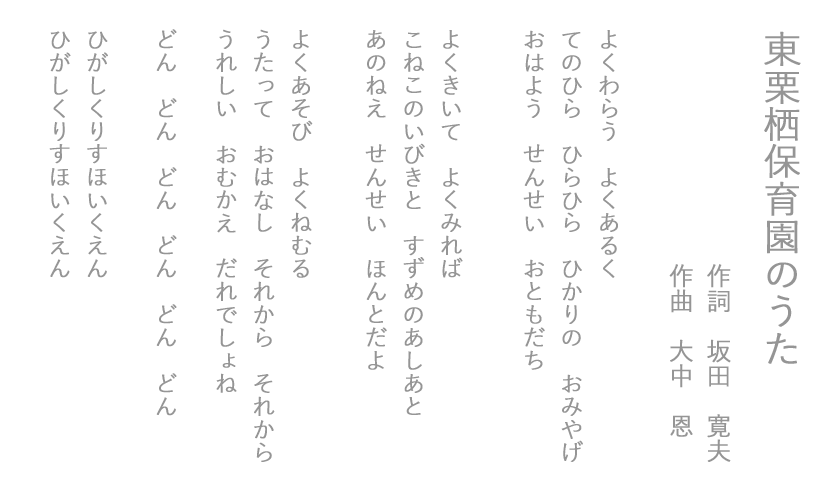 東栗栖保育園のうた
作詞　坂田　寛夫
作曲　大中　恩
よくわらう　よくあるく
てのひら　ひらひら　ひかりの　おみやげ
おはよう　せんせい　おともだち
よくきいて　よくみれば
こねこのいびきと　すずめのあしあと
あのねえ　せんせい　ほんとだよ
よくあそび　よくねむる
うたって　おはなし　それから　それから
うれしい　おむかえ　だれでしょね
どん　どん　どん　どん　どん　どん
ひがしくりすほいくえん
ひがしくりすほいくえん